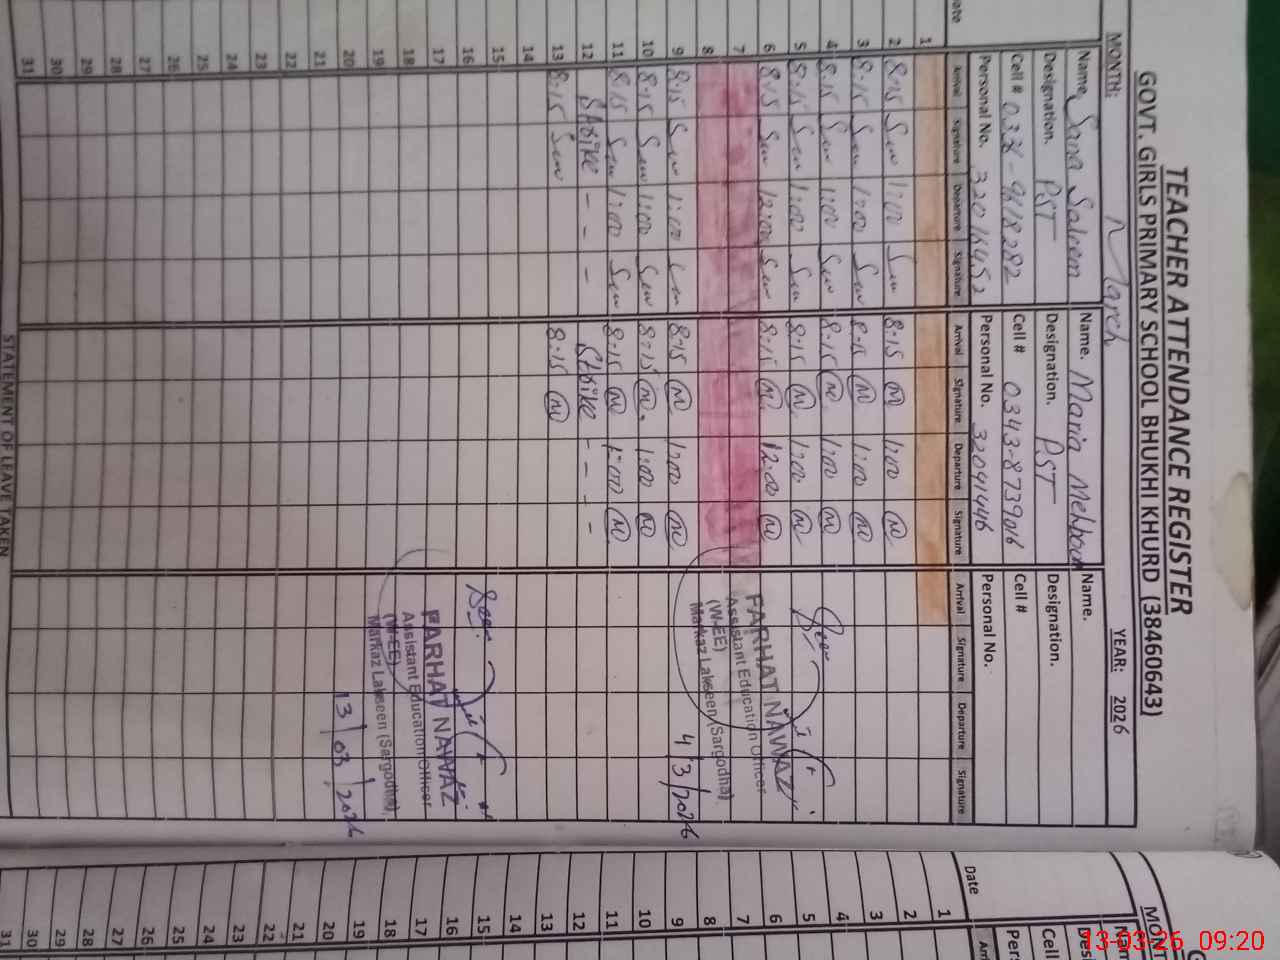 TEACHER ATTENDANCE REGISTER
GOVT. GIRLS PRIMARY SCHOOL BHUKHI KHURD (38460643)
MONTH: March YEAR: 2026
Name. Sana Saleem Name. Maria Mehboob Name.
Designation. PST Designation. PST Designation.
Cell # Cell # 0343-8739016 Cell #
Personal No. Personal No. 32041446 Personal No.
Date Arrival Signature Departure Signature Arrival Signature Departure Signature Arrival Signature Departure Signature
1
2 8:15 1:00 8:15 M 1:00 M
3 8:15 1:00 8:15 M 1:00 M
4 8:15 1:00 8:15 M 1:00 M
5 8:15 1:00 8:15 M 1:00 M
6 8:15 12:00 8:15 M 12:00 M
7
8
9 8:15 1:00 8:15 M 1:00 M
10 8:15 1:00 8:15 M 1:00 M
11 8:15 1:00 8:15 M 1:00 M
12 Strike - - - Strike - - -
13 8:15 8:15 M
14
15
16
17
18
19
20
21
22
23
24
25
26
27
28
29
30
31
Seen
FARHAT NAWAZ
Assistant Education Officer
(W-EE)
Markaz Lakseen (Sargodha)
4/3/2026
Seen
FARHAT NAWAZ
Assistant Education Officer
(W-EE)
Markaz Lakseen (Sargodha)
13/03/2026
STATEMENT OF LEAVE TAKEN
Date
1
2
3
4
5
6
7
8
9
10
11
12
13
14
15
16
17
18
19
20
21
22
23
24
25
26
27
28
29
30
31
13-03-26 09:20